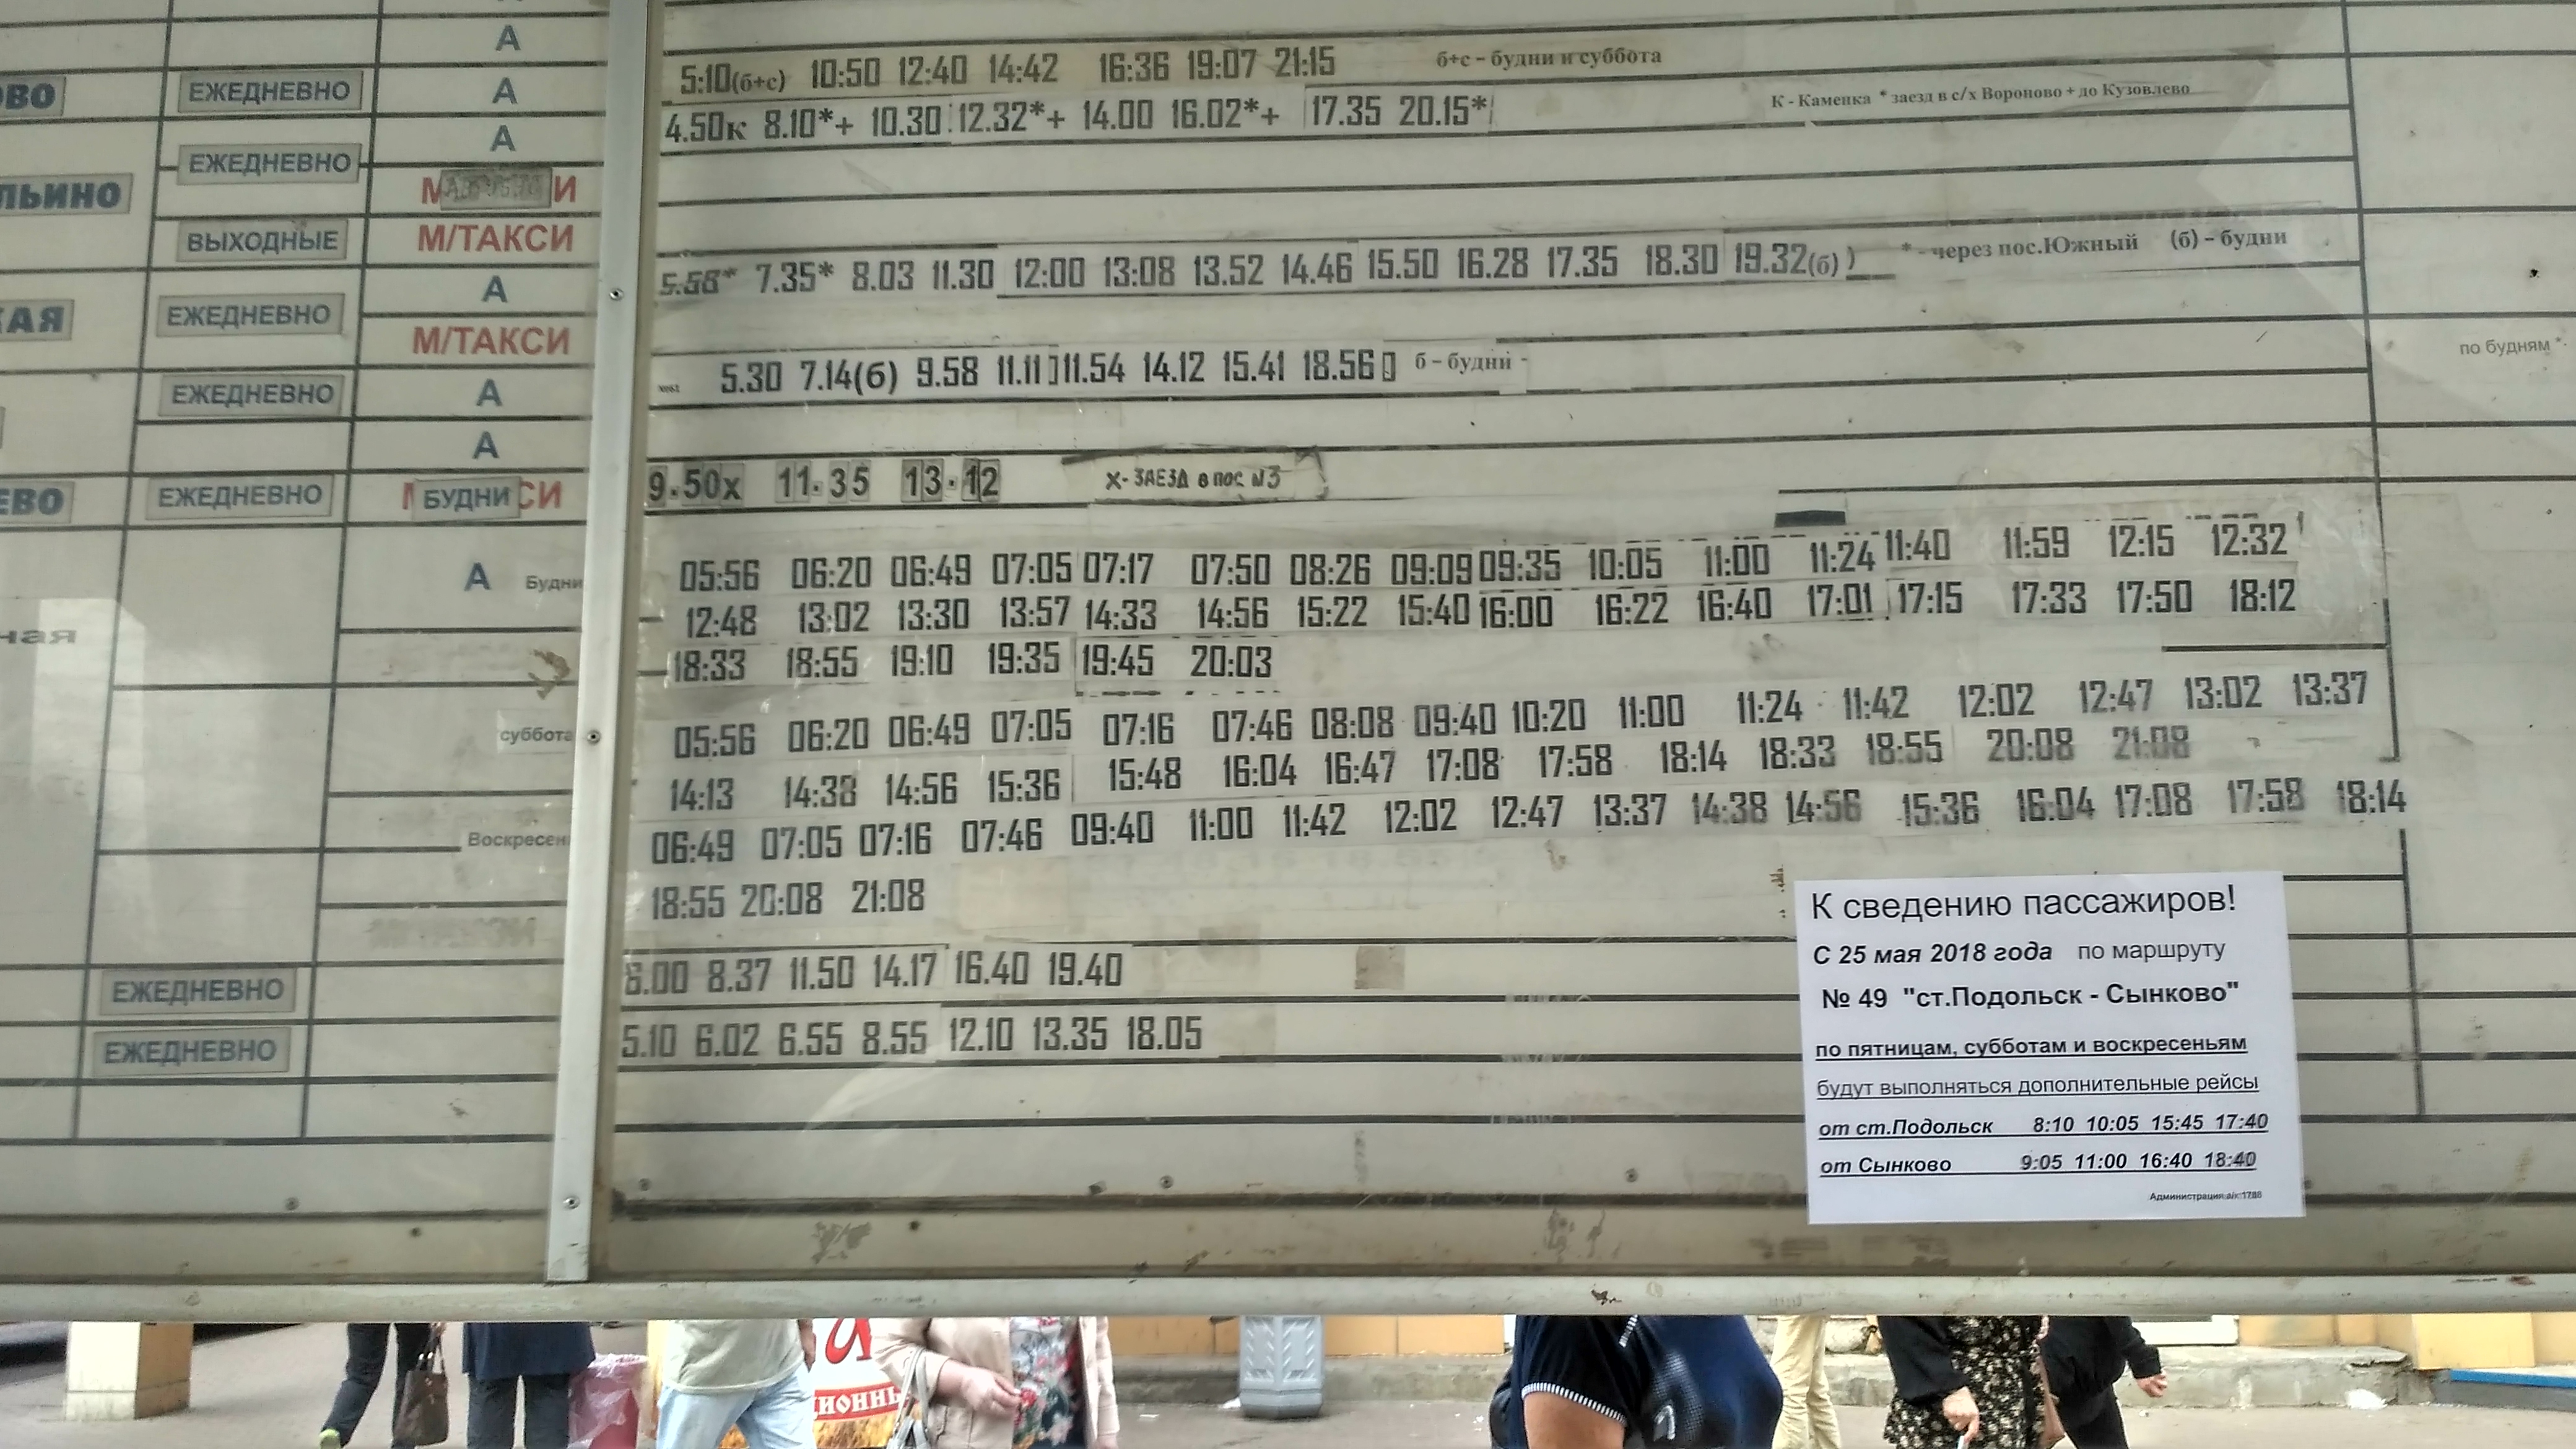 А
5:10(б+с) 10:50 12:40 14:42 16:36 19:07 21:15 б+с – будни и суббота
ОВО ЕЖЕДНЕВНО А
4.50к 8.10*+ 10.30 12.32*+ 14.00 16.02*+ 17.35 20.15* К - Каменка * заезд в с/х Вороново + до Кузовлево
А
ЕЖЕДНЕВНО
ЛЬИНО М И
ВЫХОДНЫЕ М/ТАКСИ
5.58* 7.35* 8.03 11.30 12:00 13:08 13.52 14.46 15.50 16.28 17.35 18.30 19.32(б) ) * - через пос.Южный (б) – будни
А
КАЯ ЕЖЕДНЕВНО
М/ТАКСИ
по будням *
5.30 7.14(б) 9.58 11.11 11.54 14.12 15.41 18.56 б – будни -
ЕЖЕДНЕВНО А
А
9.50х 11.35 13.12 х- ЗАЕЗД в пос N3
ЕВО ЕЖЕДНЕВНО М БУДНИ СИ
А Будни
05:56 06:20 06:49 07:05 07:17 07:50 08:26 09:09 09:35 10:05 11:00 11:24 11:40 11:59 12:15 12:32
12:48 13:02 13:30 13:57 14:33 14:56 15:22 15:40 16:00 16:22 16:40 17:01 17:15 17:33 17:50 18:12
ная
18:33 18:55 19:10 19:35 19:45 20:03
суббота
05:56 06:20 06:49 07:05 07:16 07:46 08:08 09:40 10:20 11:00 11:24 11:42 12:02 12:47 13:02 13:37
14:13 14:38 14:56 15:36 15:48 16:04 16:47 17:08 17:58 18:14 18:33 18:55 20:08 21:08
Воскресен
06:49 07:05 07:16 07:46 09:40 11:00 11:42 12:02 12:47 13:37 14:38 14:56 15:36 16:04 17:08 17:58 18:14
18:55 20:08 21:08
ЕЖЕДНЕВНО
6.00 8.37 11.50 14.17 16.40 19.40
ЕЖЕДНЕВНО
5.10 6.02 6.55 8.55 12.10 13.35 18.05
К сведению пассажиров!
С 25 мая 2018 года по маршруту
№ 49 "ст.Подольск - Сынково"
по пятницам, субботам и воскресеньям
будут выполняться дополнительные рейсы
от ст.Подольск 8:10 10:05 15:45 17:40
от Сынково 9:05 11:00 16:40 18:40
Администрация а/к 1788
ИОНН